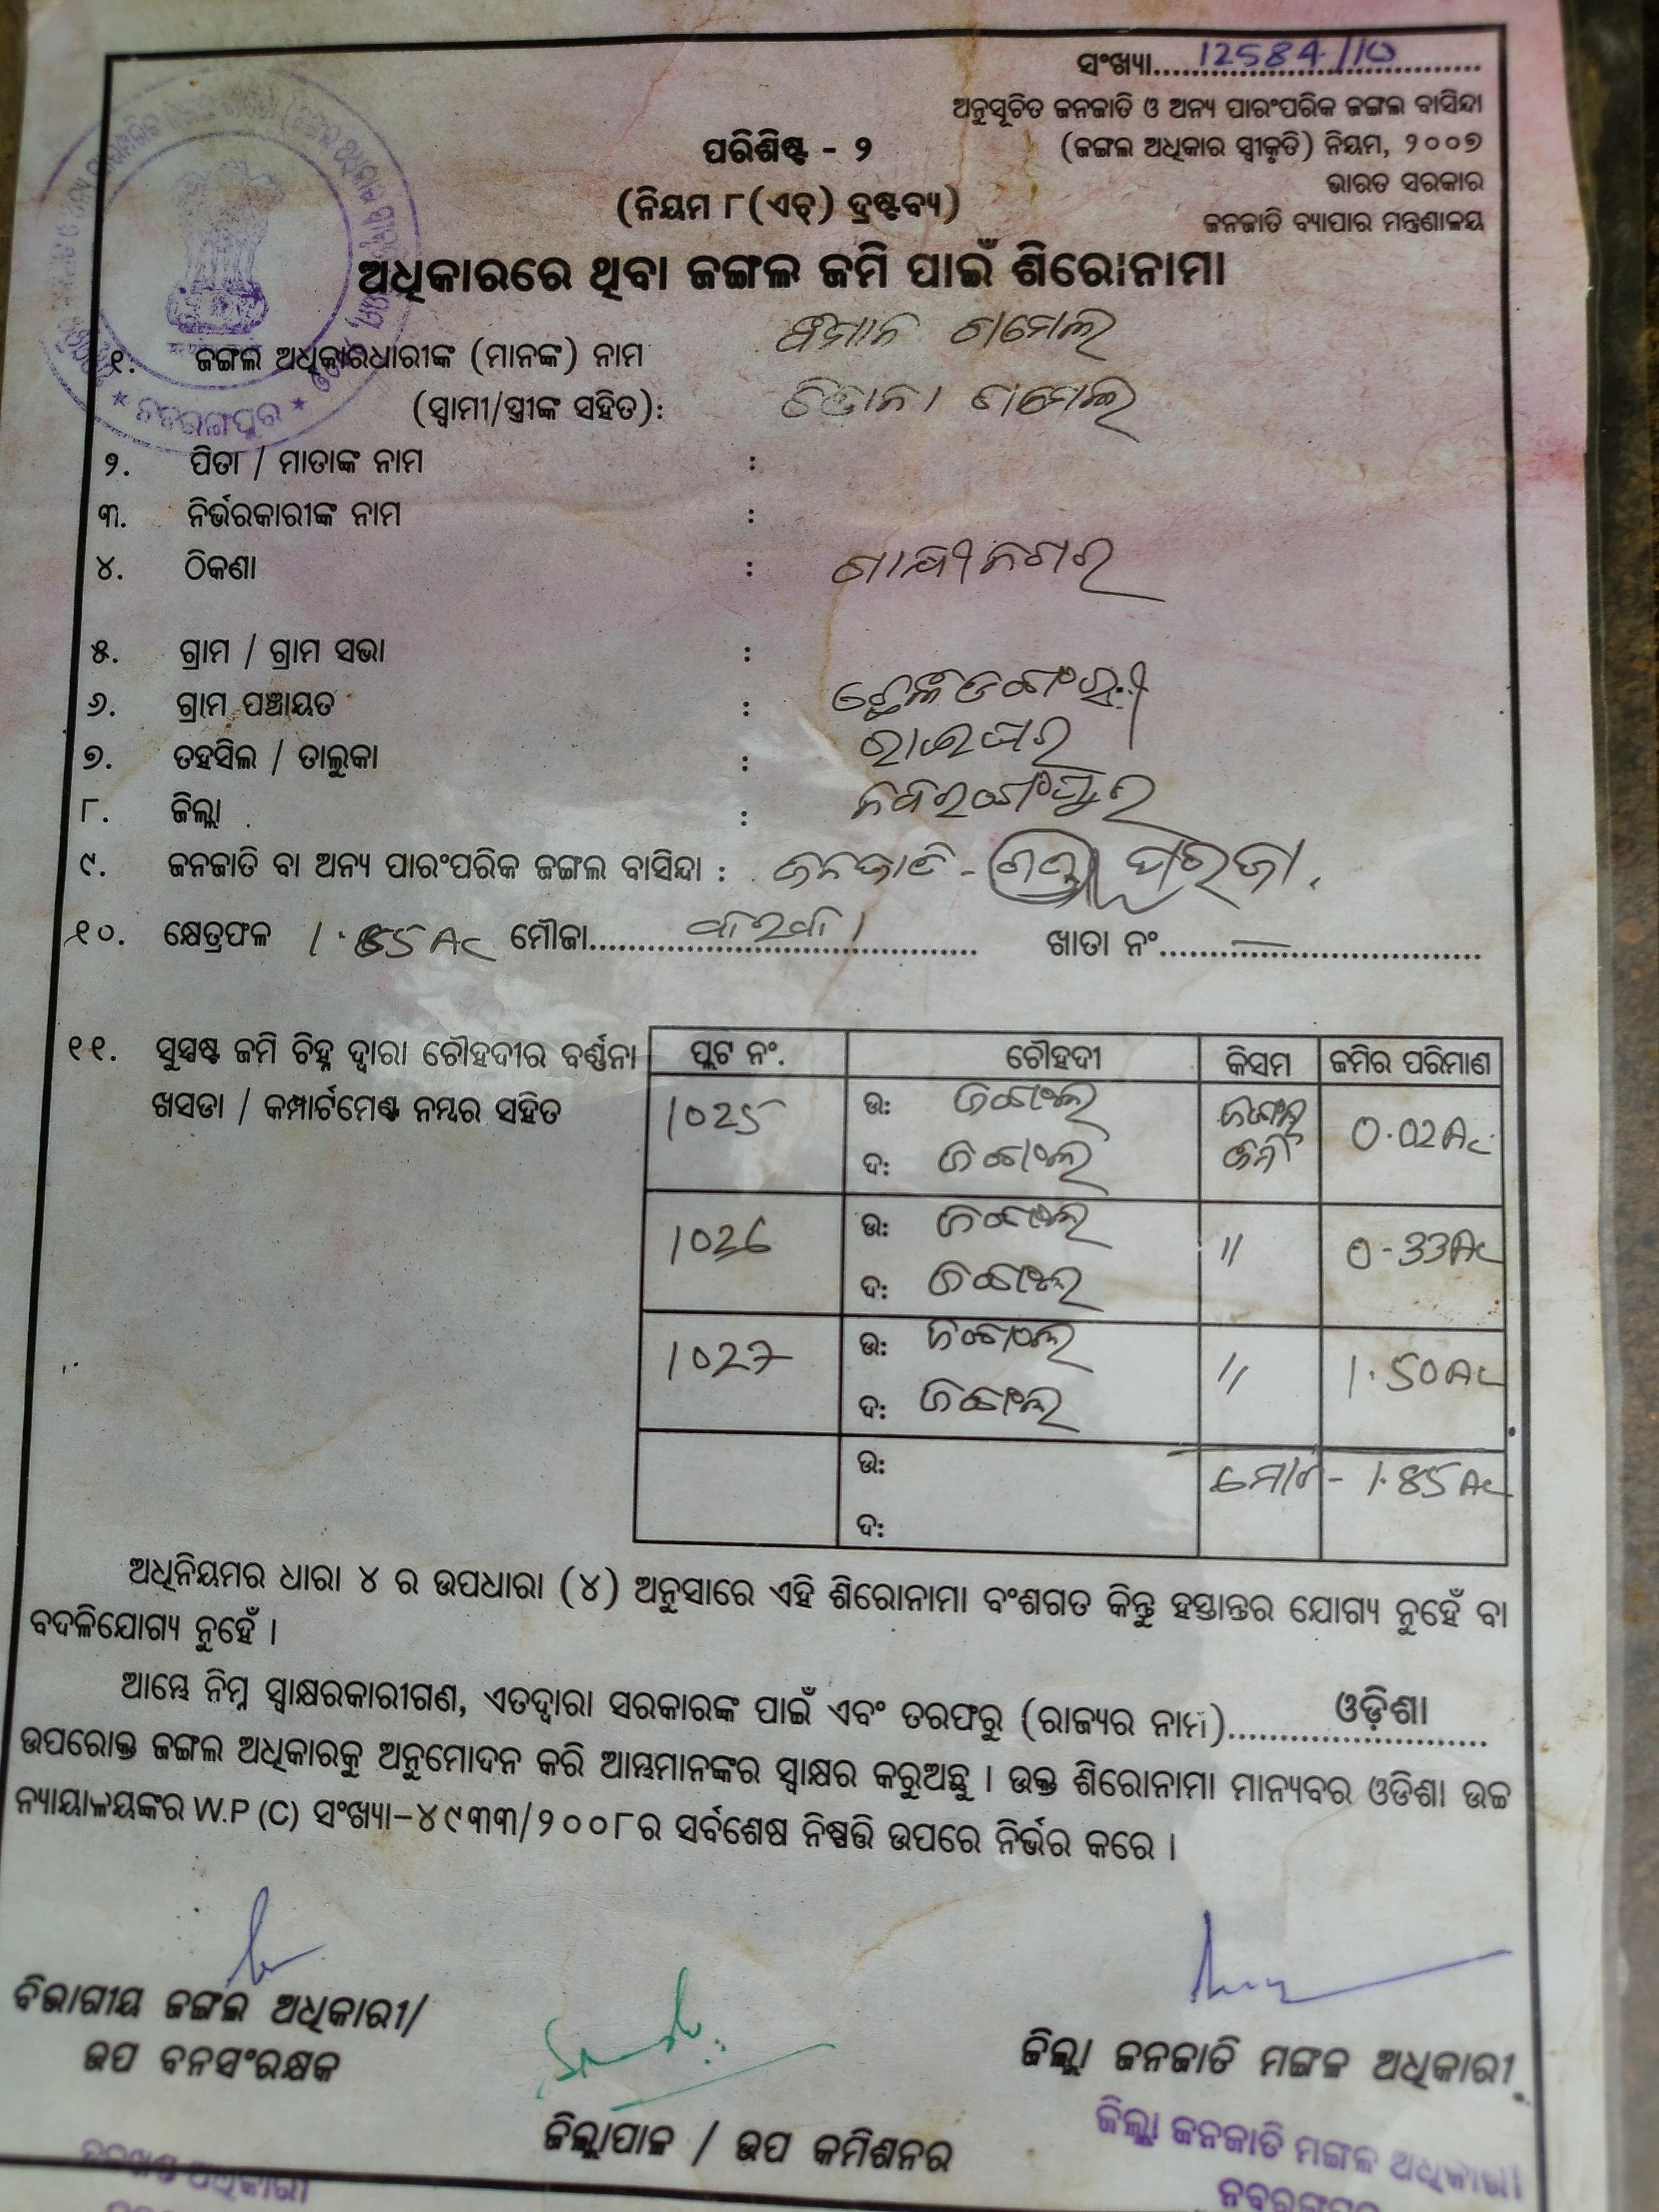 ସଂଖ୍ୟା.......12584/10
ଅନୁସୂଚିତ ଜନଜାତି ଓ ଅନ୍ୟ ପାରଂପରିକ ଜଙ୍ଗଲ ବାସିନ୍ଦା
(ଜଙ୍ଗଲ ଅଧିକାର ସ୍ୱୀକୃତି) ନିୟମ, ୨୦୦୭
ଭାରତ ସରକାର
ଜନଜାତି ବ୍ୟାପାର ମନ୍ତ୍ରଣାଳୟ
ପରିଶିଷ୍ଟ - ୨
(ନିୟମ ୮(ଏଚ୍) ଦ୍ରଷ୍ଟବ୍ୟ)
ଅଧିକାରରେ ଥିବା ଜଙ୍ଗଲ ଜମି ପାଇଁ ଶିରୋନାମା
୧. ଜଙ୍ଗଲ ଅଧିକାରଧାରୀଙ୍କ (ମାନଙ୍କ) ନାମ
(ସ୍ୱାମୀ/ସ୍ତ୍ରୀଙ୍କ ସହିତ):
ନବରଙ୍ଗପୁର
୨. ପିତା / ମାତାଙ୍କ ନାମ :
୩. ନିର୍ଭରକାରୀଙ୍କ ନାମ :
୪. ଠିକଣା : ଗାନ୍ଧୀନଗର
୫. ଗ୍ରାମ / ଗ୍ରାମ ସଭା :
୬. ଗ୍ରାମ ପଞ୍ଚାୟତ :
୭. ତହସିଲ / ତାଲୁକା : ରାଇଘର
୮. ଜିଲ୍ଲା : ନବରଙ୍ଗପୁର
୯. ଜନଜାତି ବା ଅନ୍ୟ ପାରଂପରିକ ଜଙ୍ଗଲ ବାସିନ୍ଦା : ଜନଜାତି -
୧୦. କ୍ଷେତ୍ରଫଳ 1.85 Ac ମୌଜା....... ଖାତା ନଂ.......
୧୧. ସୁସ୍ପଷ୍ଟ ଜମି ଚିହ୍ନ ଦ୍ୱାରା ଚୌହଦୀର ବର୍ଣ୍ଣନା
ଖସଡା / କମ୍ପାର୍ଟମେଣ୍ଟ ନମ୍ବର ସହିତ
ପ୍ଲଟ ନଂ. ଚୌହଦୀ କିସମ ଜମିର ପରିମାଣ
1025 ଉ: ଜଙ୍ଗଲ ଜଙ୍ଗଲ 0.02 Ac
ଦ: ଜଙ୍ଗଲ ଜମି
1026 ଉ: ଜଙ୍ଗଲ " 0-33 Ac
ଦ: ଜଙ୍ଗଲ
1027 ଉ: ଜଙ୍ଗଲ " 1.50 Ac
ଦ: ଜଙ୍ଗଲ
ଉ: ମୋଟ - 1.85 Ac
ଦ:
ଅଧିନିୟମର ଧାରା ୪ ର ଉପଧାରା (୪) ଅନୁସାରେ ଏହି ଶିରୋନାମା ବଂଶଗତ କିନ୍ତୁ ହସ୍ତାନ୍ତର ଯୋଗ୍ୟ ନୁହେଁ ବା
ବଦଳିଯୋଗ୍ୟ ନୁହେଁ ।
ଆମ୍ଭେ ନିମ୍ନ ସ୍ୱାକ୍ଷରକାରୀଗଣ, ଏତଦ୍ୱାରା ସରକାରଙ୍କ ପାଇଁ ଏବଂ ତରଫରୁ (ରାଜ୍ୟର ନାମ).......ଓଡ଼ିଶା
ଉପରୋକ୍ତ ଜଙ୍ଗଲ ଅଧିକାରକୁ ଅନୁମୋଦନ କରି ଆମ୍ଭମାନଙ୍କର ସ୍ୱାକ୍ଷର କରୁଅଛୁ । ଉକ୍ତ ଶିରୋନାମା ମାନ୍ୟବର ଓଡିଶା ଉଚ୍ଚ
ନ୍ୟାୟାଳୟଙ୍କର W.P (C) ସଂଖ୍ୟା-୪୯୩୩/୨୦୦୮ର ସର୍ବଶେଷ ନିଷ୍ପତ୍ତି ଉପରେ ନିର୍ଭର କରେ ।
ବିଭାଗୀୟ ଜଙ୍ଗଲ ଅଧିକାରୀ/
ଉପ ବନସଂରକ୍ଷକ
ଜିଲ୍ଲାପାଳ / ଉପ କମିଶନର
ଜିଲ୍ଲା ଜନଜାତି ମଙ୍ଗଳ ଅଧିକାରୀ
ଜିଲ୍ଲା ଜନଜାତି ମଙ୍ଗଳ ଅଧିକାରୀ
ନବରଙ୍ଗପୁର